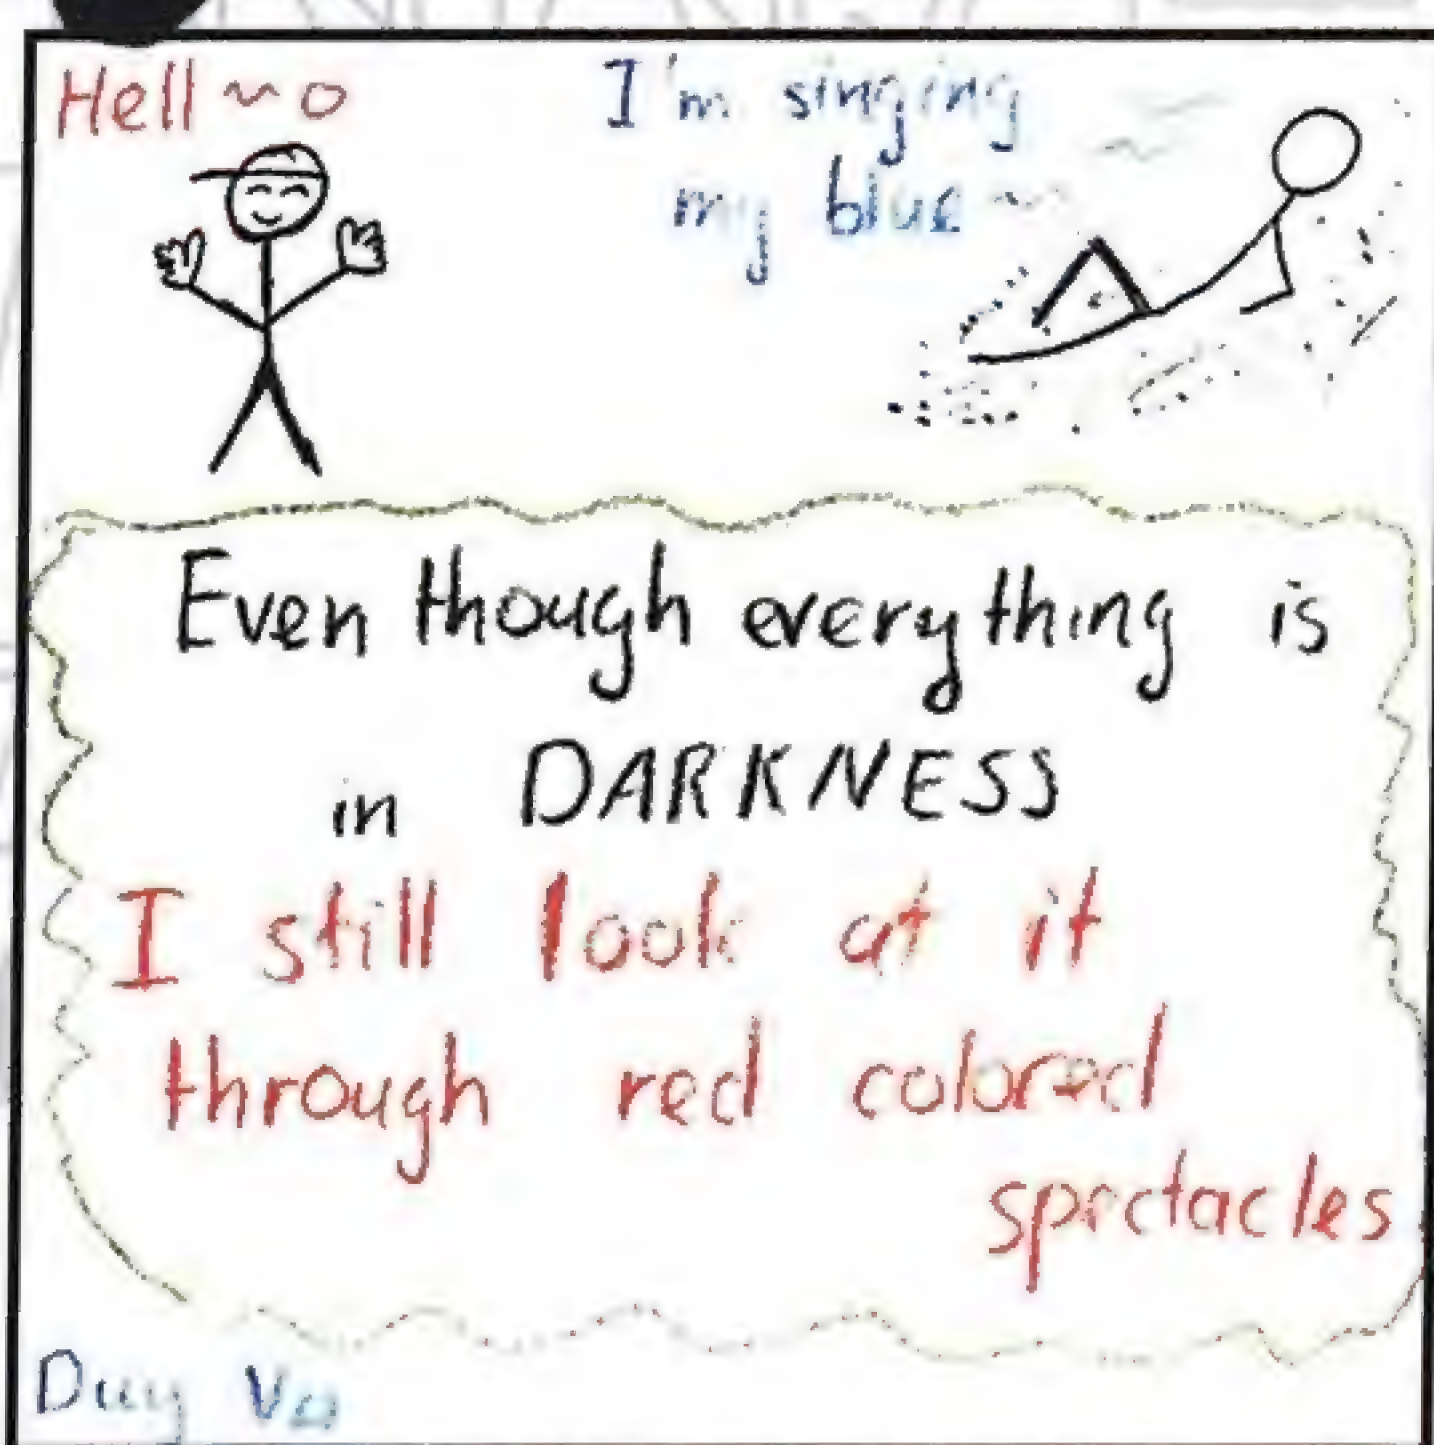 Hell~o
I'm singing
my blue~
Even though everything is
in DARKNESS
I still look at it
through red colored
spectacles
Duy Vo